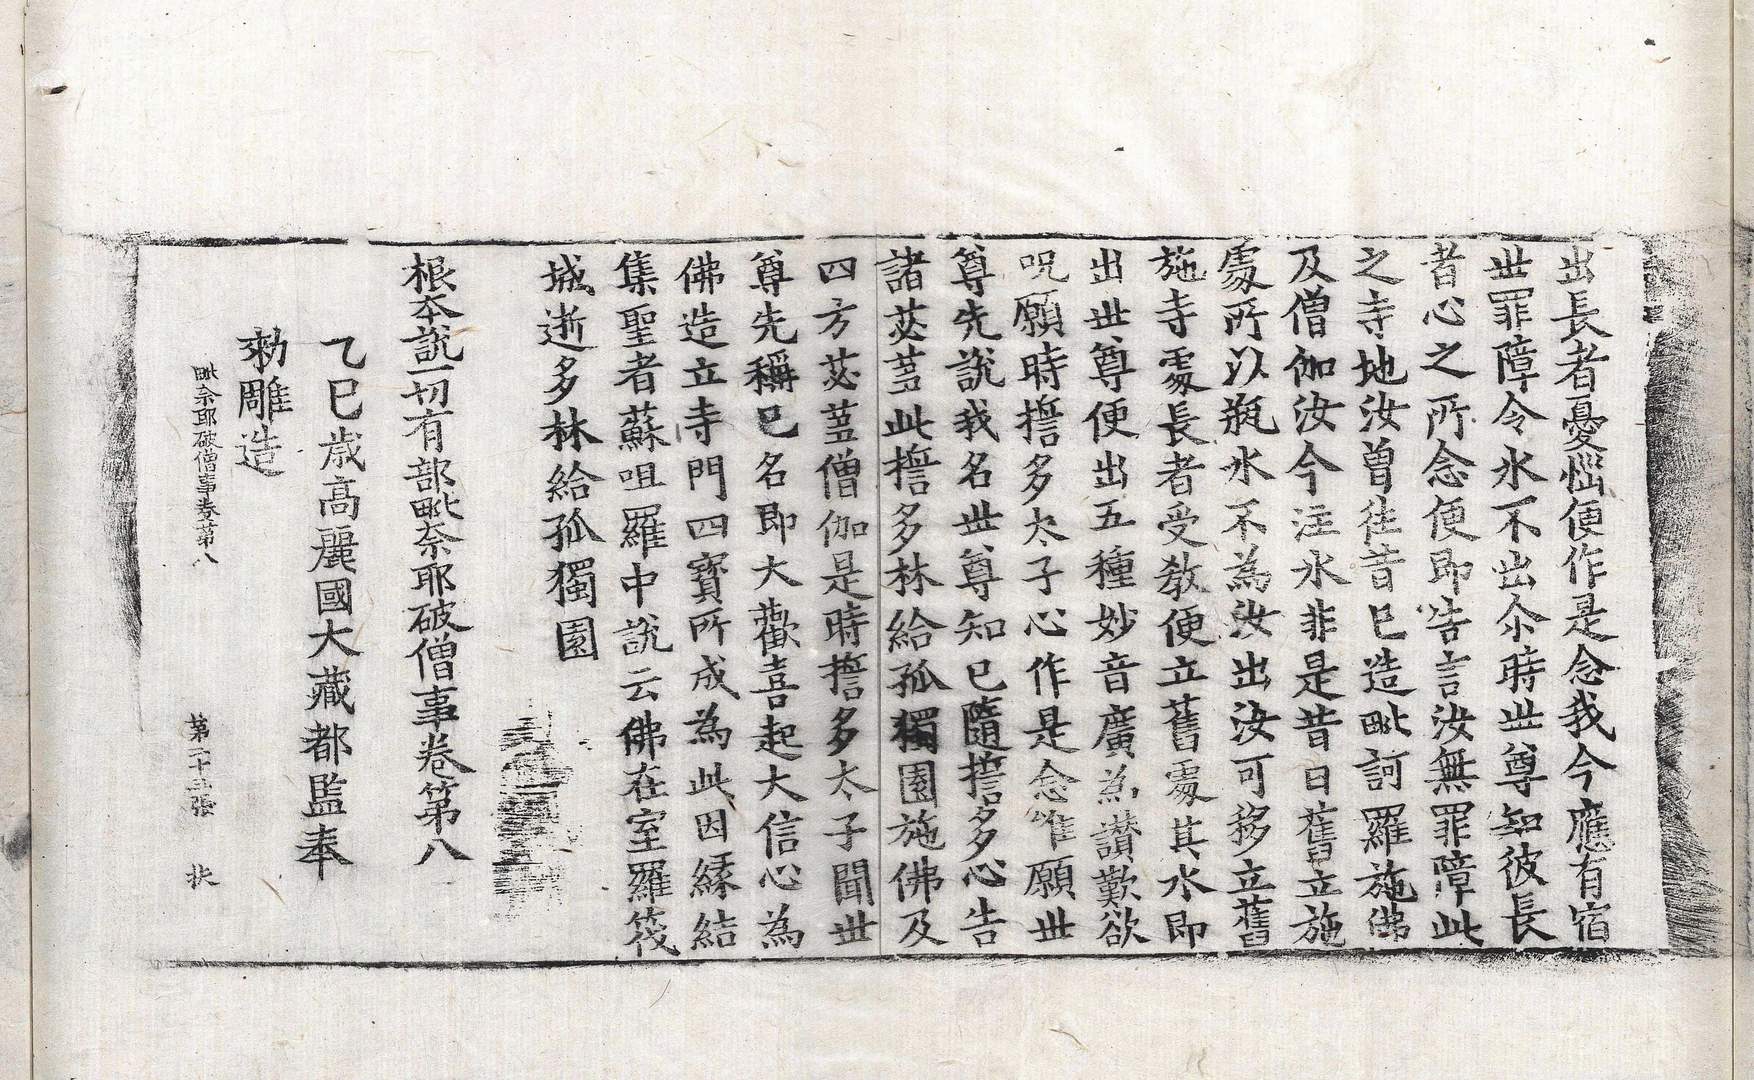 出長者憂惱便作是念我今應有宿
世罪障令水不出尒時世尊知彼長
者心之所念便即告言汝無罪障此
之寺地汝曾往昔已造毗訶羅施佛
及僧伽汝今注水非是昔日舊立施
處所以瓶水不為汝出汝可移立舊
施寺處長者受教便立舊處其水即
出世尊便出五種妙音廣為讃歎欲
呪願時誓多太子心作是念唯願世
尊先說我名世尊知已隨誓多心告
諸苾蒭此誓多林給孤獨園施佛及
四方苾蒭僧伽是時誓多太子聞世
尊先稱已名即大歡喜起大信心為
佛造立寺門四寶所成為此因緣結
集聖者蘇呾羅中說云佛在室羅筏
城逝多林給孤獨園
根本說一切有部毗奈耶破僧事卷第八
乙巳歲高麗國大藏都監奉
勑雕造
毗奈耶破僧事卷第八 第二十三張